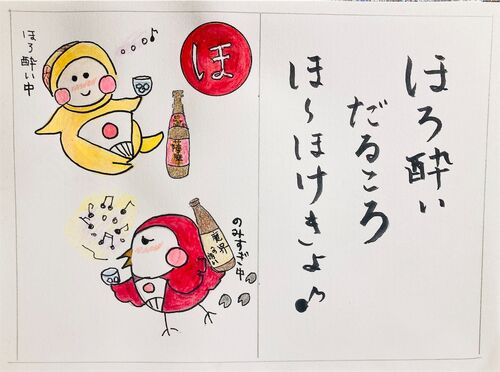 ほろ酔い
だるころ
ほ〜ほけきょ♪
ほ
ほろ酔い中
のみすぎ中
魔界